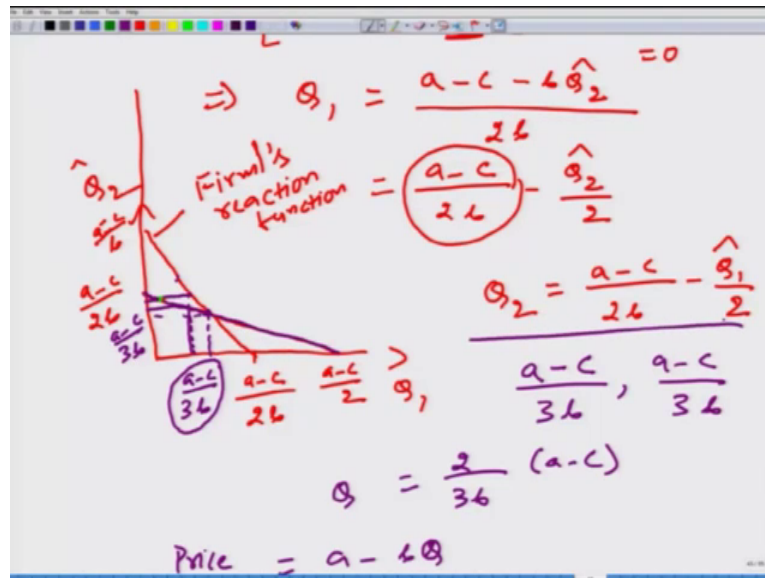 = 0
⇒ Q₁ = (a - c - b Q̂₂) / 2b
= (a - c) / 2b - Q̂₂ / 2
Firm1's
reaction
function
Q̂₂
(a - c) / b
(a - c) / 2b
(a - c) / 3b
(a - c) / 3b (a - c) / 2b (a - c) / 2 Q₁
Q₂ = (a - c) / 2b - Q̂₁ / 2
(a - c) / 3b , (a - c) / 3b
Q = 2 / 3b (a - c)
Price = a - b Q